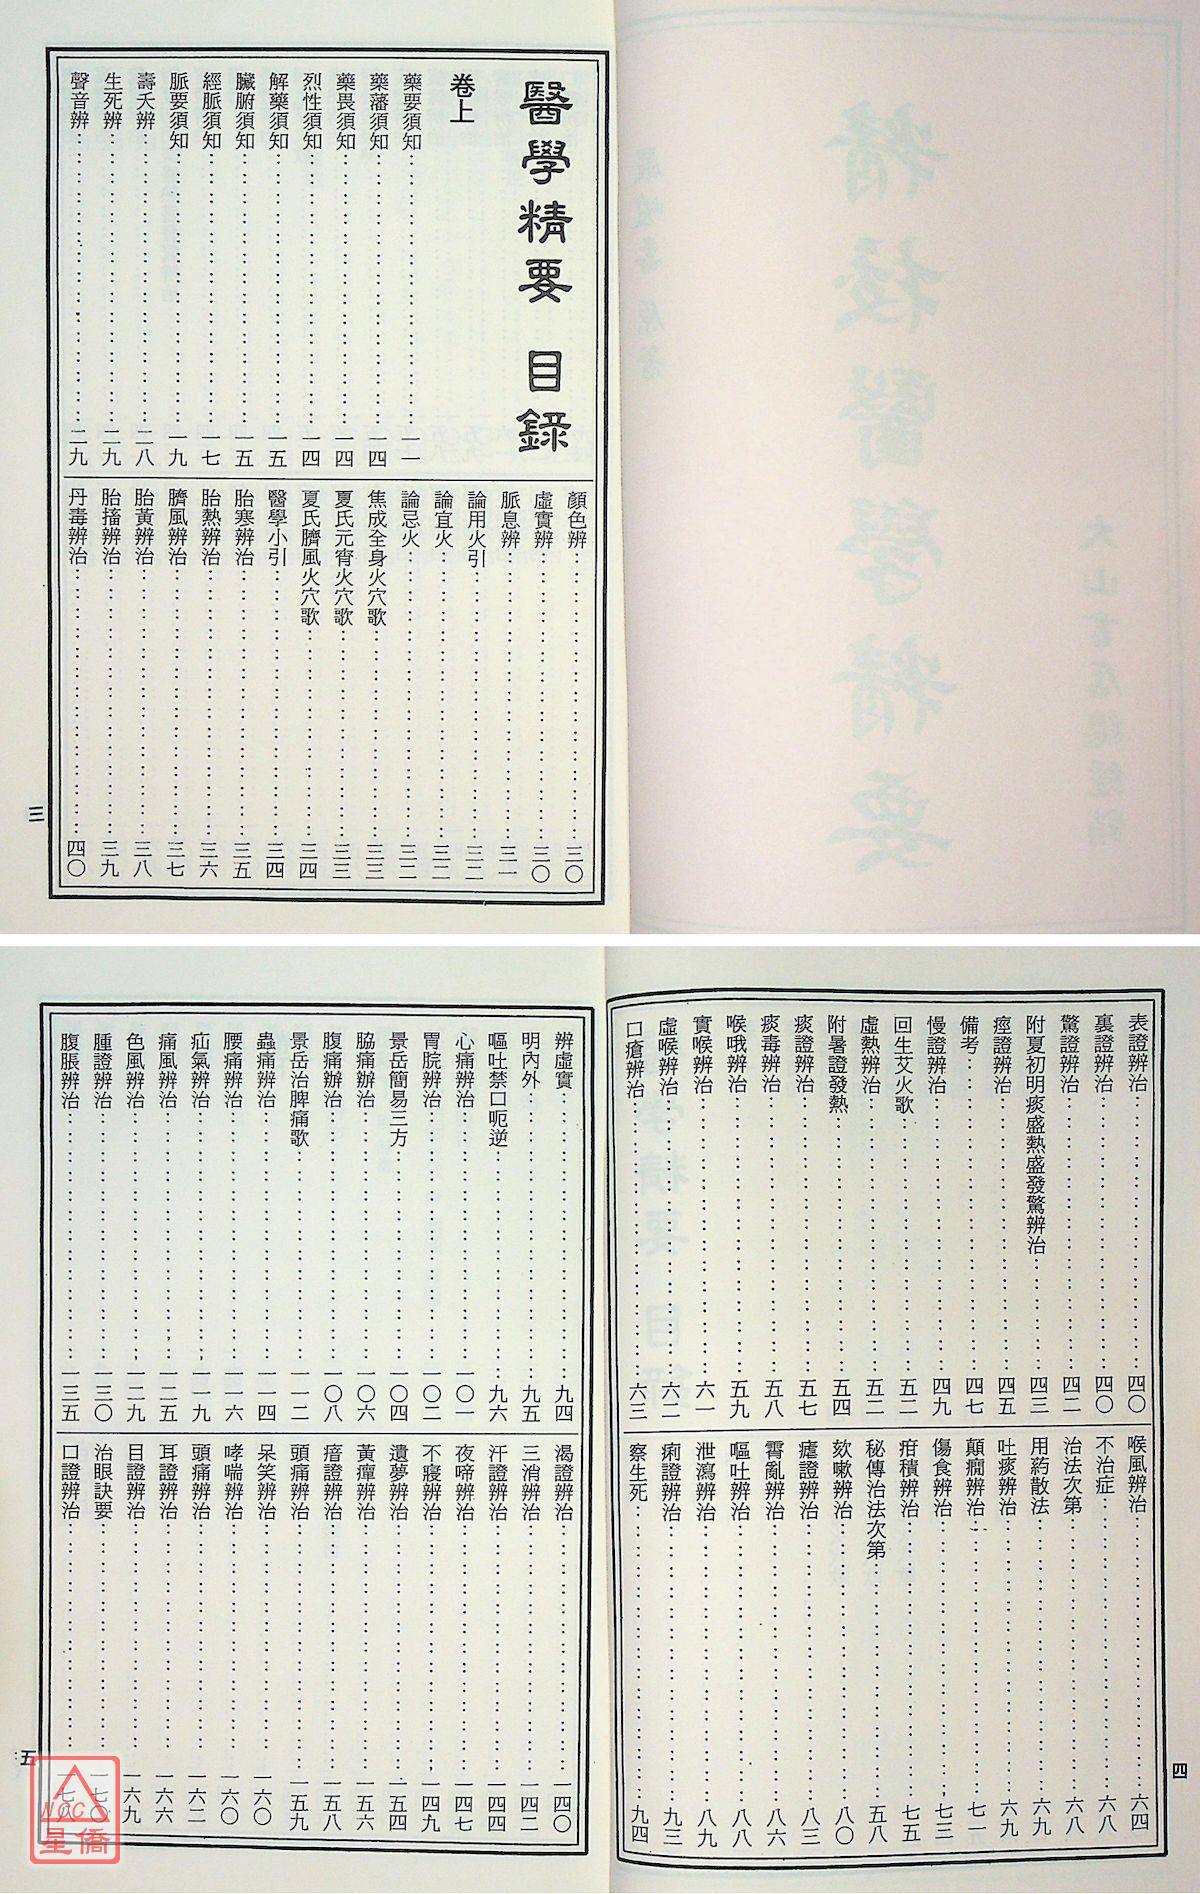 醫學精要 目錄
卷上
藥要須知……一一
藥藩須知……一四
藥畏須知……一四
烈性須知……一四
解藥須知……一五
臟腑須知……一五
經脈須知……一七
脈要須知……一九
壽夭辨……二八
生死辨……二九
聲音辨……二九
顏色辨……三〇
虛實辨……三〇
脈息辨……三一
論用火引……三二
論宜火……三二
論忌火……三二
焦成全身火穴歌……三三
夏氏元宵火穴歌……三三
夏氏臍風火穴歌……三四
醫學小引……三四
胎寒辨治……三五
胎熱辨治……三六
臍風辨治……三七
胎黃辨治……三八
胎搐辨治……三九
丹毒辨治……四〇
三
表證辨治……四〇
裏證辨治……四〇
驚證辨治……四二
附夏初明痰盛熱盛發驚辨治……四三
痙證辨治……四五
備考……四七
慢證辨治……四九
回生艾火歌……五二
虛熱辨治……五二
附暑證發熱……五四
痰證辨治……五七
痰毒辨治……五八
喉哦辨治……五九
實喉辨治……六一
虛喉辨治……六二
口瘡辨治……六三
喉風辨治……六四
不治症……六八
治法次第……六八
用葯散法……六九
吐痰辨治……六九
顛癇辨治……七一
傷食辨治……七三
疳積辨治……七五
秘傳治法次第……五八
欬嗽辨治……八〇
瘧證辨治……八三
霄亂辨治……八六
嘔吐辨治……八八
泄瀉辨治……八九
痢證辨治……九三
察生死……九四
四
辨虛實……九四
明內外……九五
嘔吐禁口呃逆……九六
心痛辨治……一〇一
胃脘辨治……一〇二
景岳簡易三方……一〇四
脇痛辦治……一〇六
腹痛辦治……一〇八
景岳治脾痛歌……一一二
蟲痛辨治……一一四
腰痛辨治……一一六
疝氣辨治……一一九
痛風辨治……一二五
色風辨治……一二九
腫證辨治……一三〇
腹脹辨治……一三五
渴證辨治……一四〇
三消辨治……一四二
汗證辨治……一四四
夜啼辨治……一四七
不寢辨治……一四九
遺夢辨治……一五四
黃癉辨治……一五六
瘖證辨治……一五八
頭痛辨治……一五九
呆笑辨治……一六〇
哮喘辨治……一六〇
頭痛辨治……一六二
耳證辨治……一六六
目證辨治……一六九
治眼訣要……一七〇
口證辨治……一七八
五
NCC
星僑